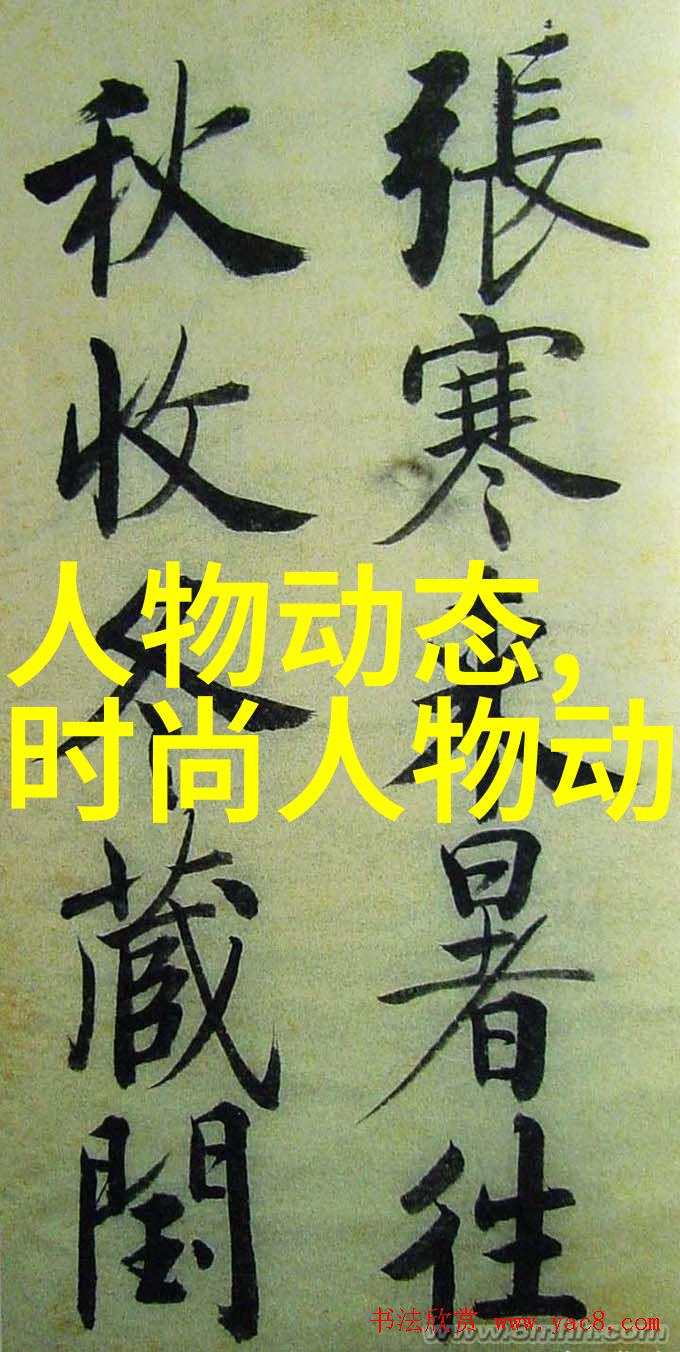 張寒来暑往
秋收冬蔵閏
人物动态,
时尚人物动
书法欣赏 www.yac8.com